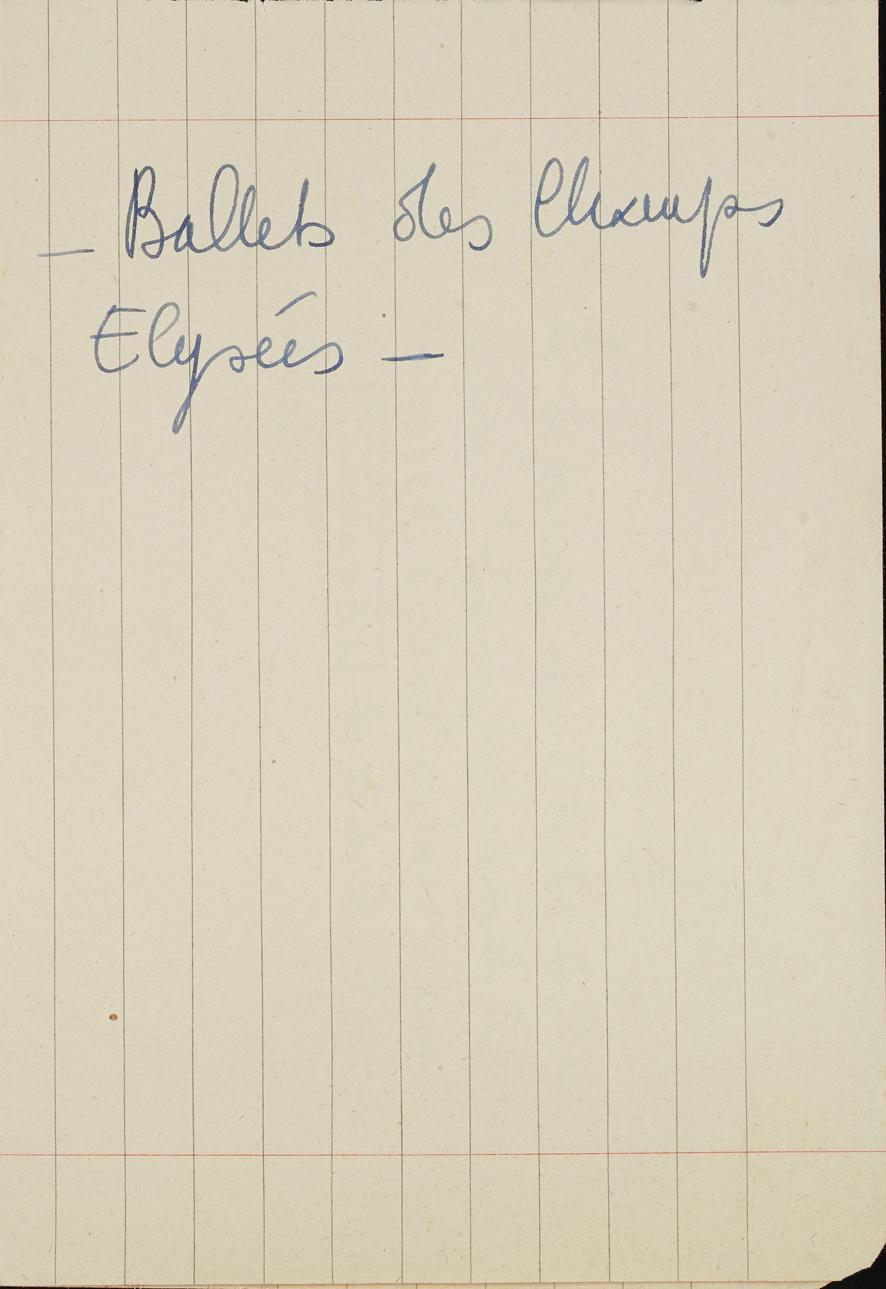 — Ballets des Champs
Elysées —